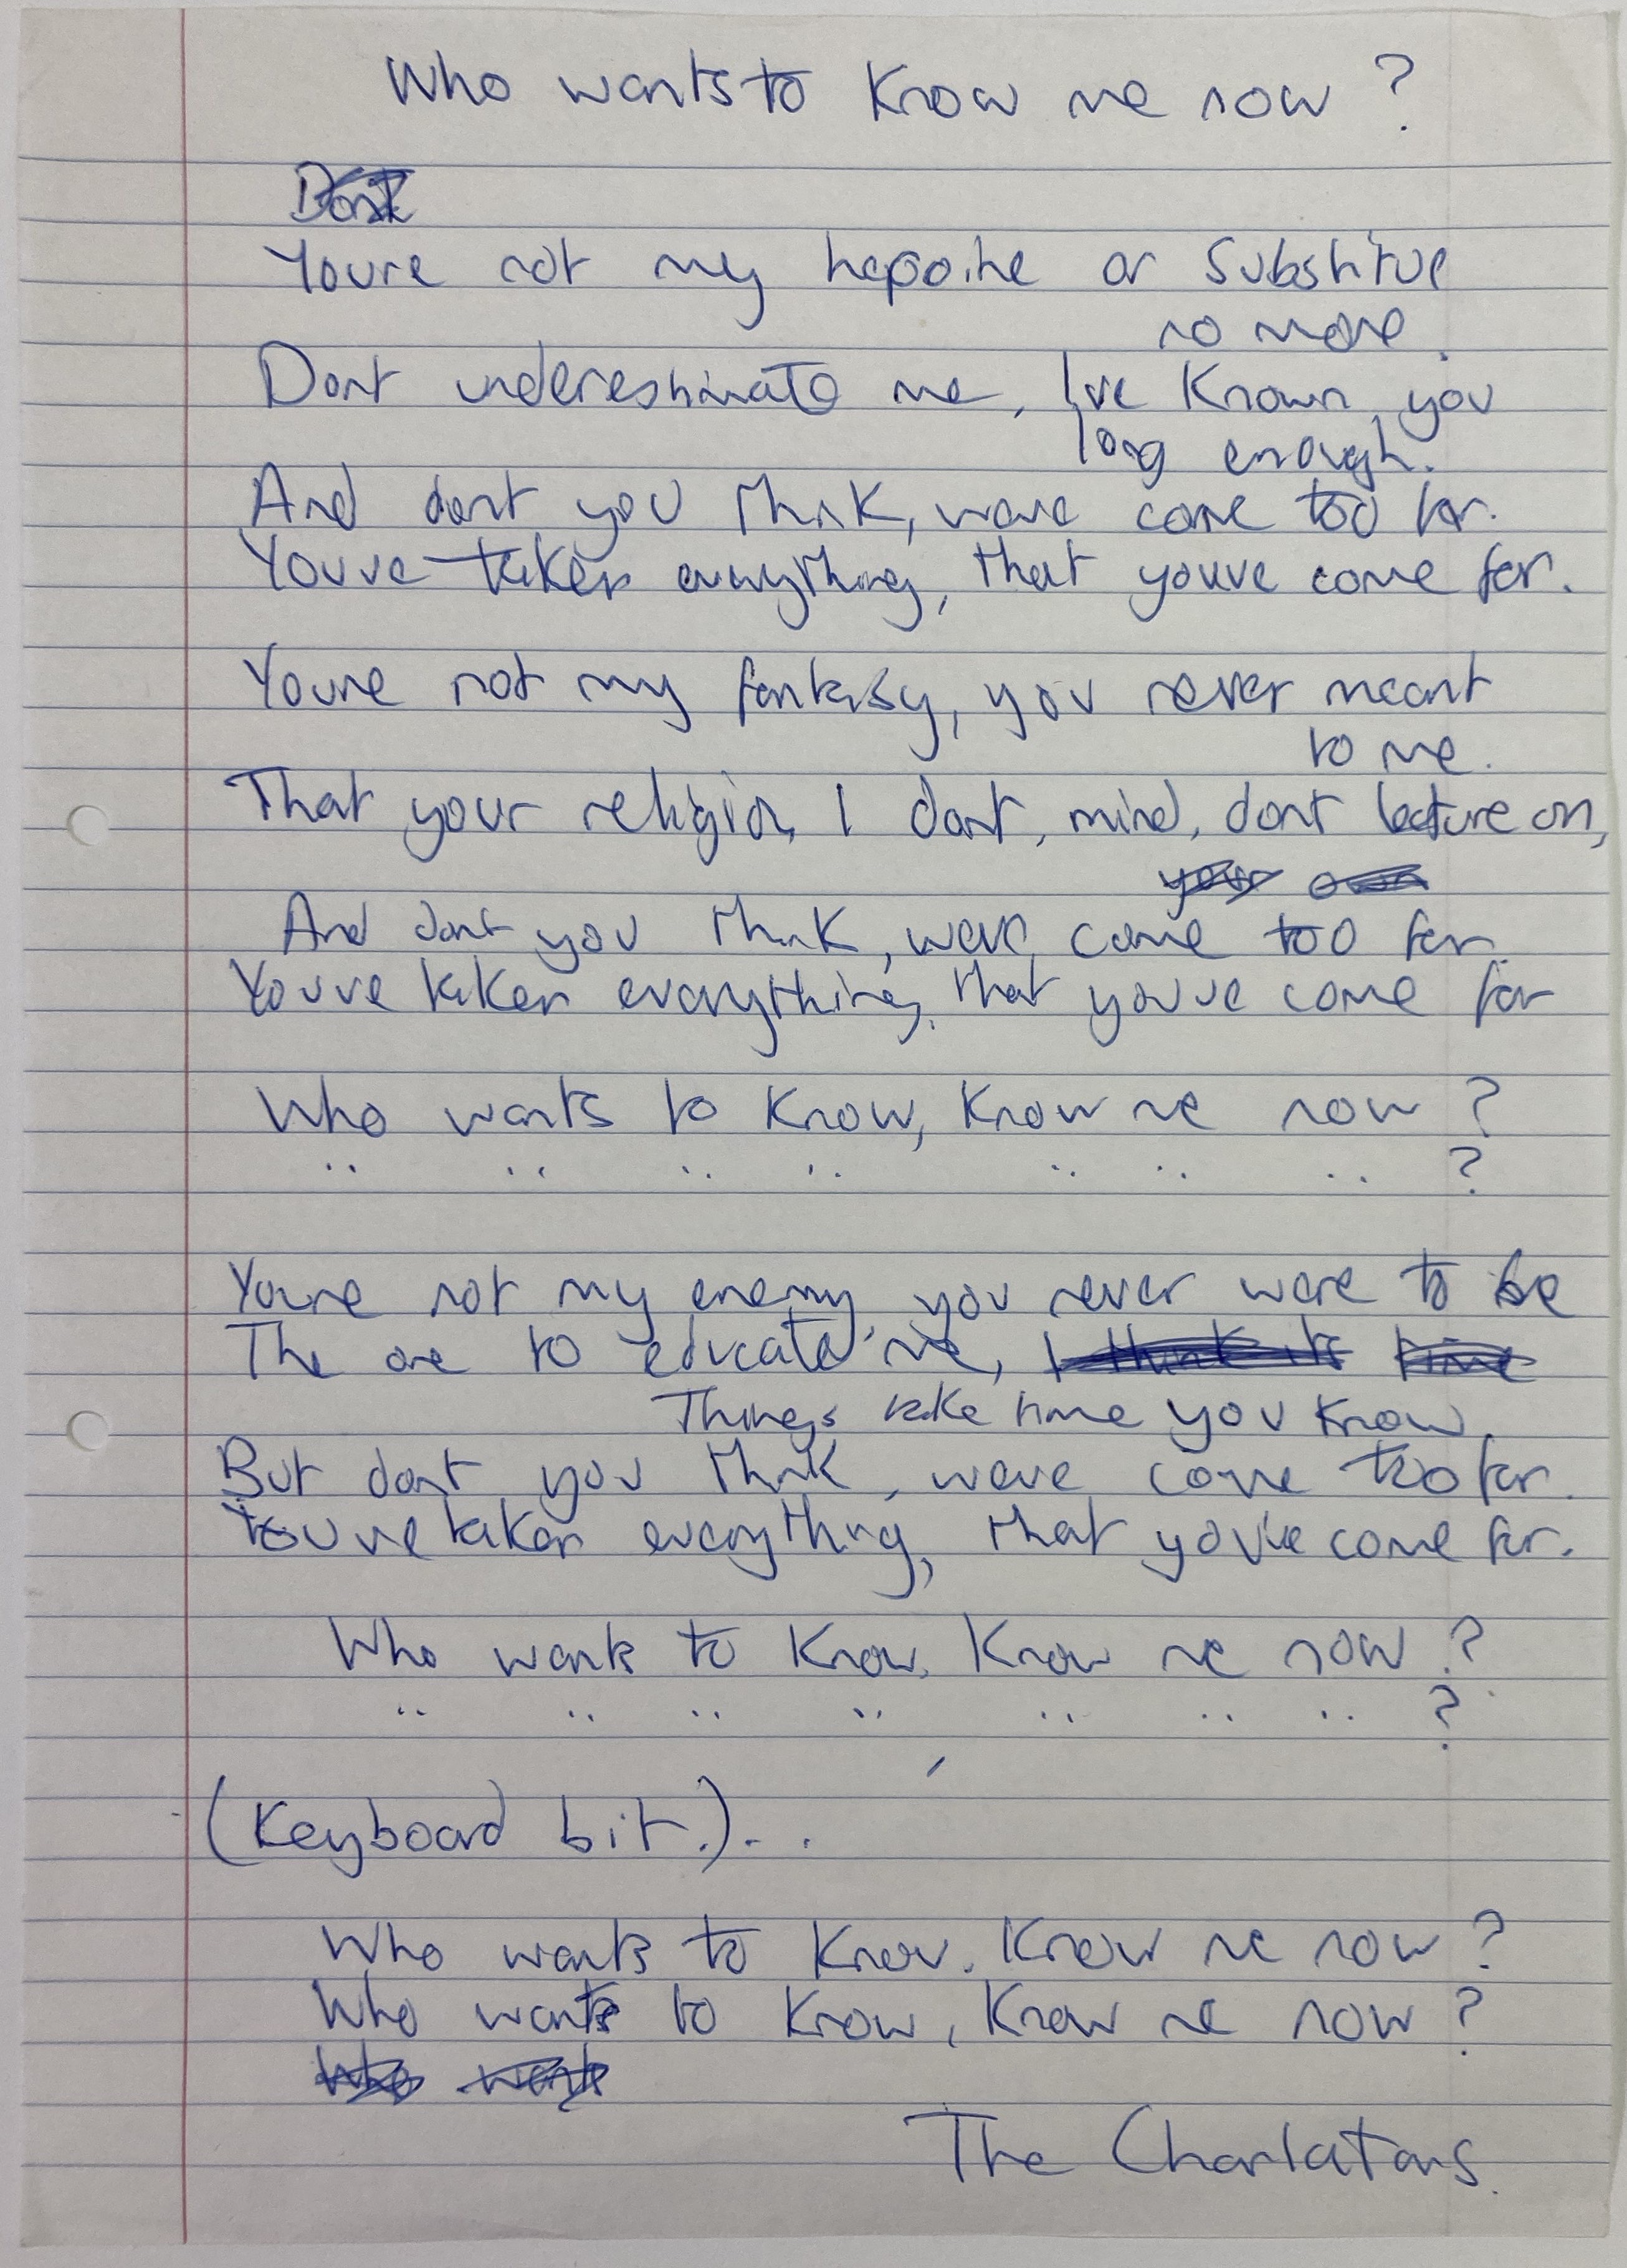 Who wants to Know me now ?
Dont
Youre not my heroine or Substitue
no more.
Dont underestimate me, Ive Known you
long enough.
And dont you think, weve come too far.
Youve taken everything, that youve come for.
Youre not my fantasy, you never meant
to me.
That your religion I dont, mind, dont lecture on,
your own
And dont you think, weve come too far.
Youve taken everything, that youve come for
Who wants to Know, Know me now ?
.. .. .. .. .. .. .. ?
Youre not my enemy, you never were to be
The one to educate me, I think its time
Things take time you Know
But dont you think, weve come too far.
Youve taken everything, that you've come for.
Who wants to Know, Know me now ?
.. .. .. .. .. .. .. ?
(Keyboard bit.)...
Who wants to Know. Know me now ?
Who wants to Know, Know me now ?
Who wants
The Charlatans.